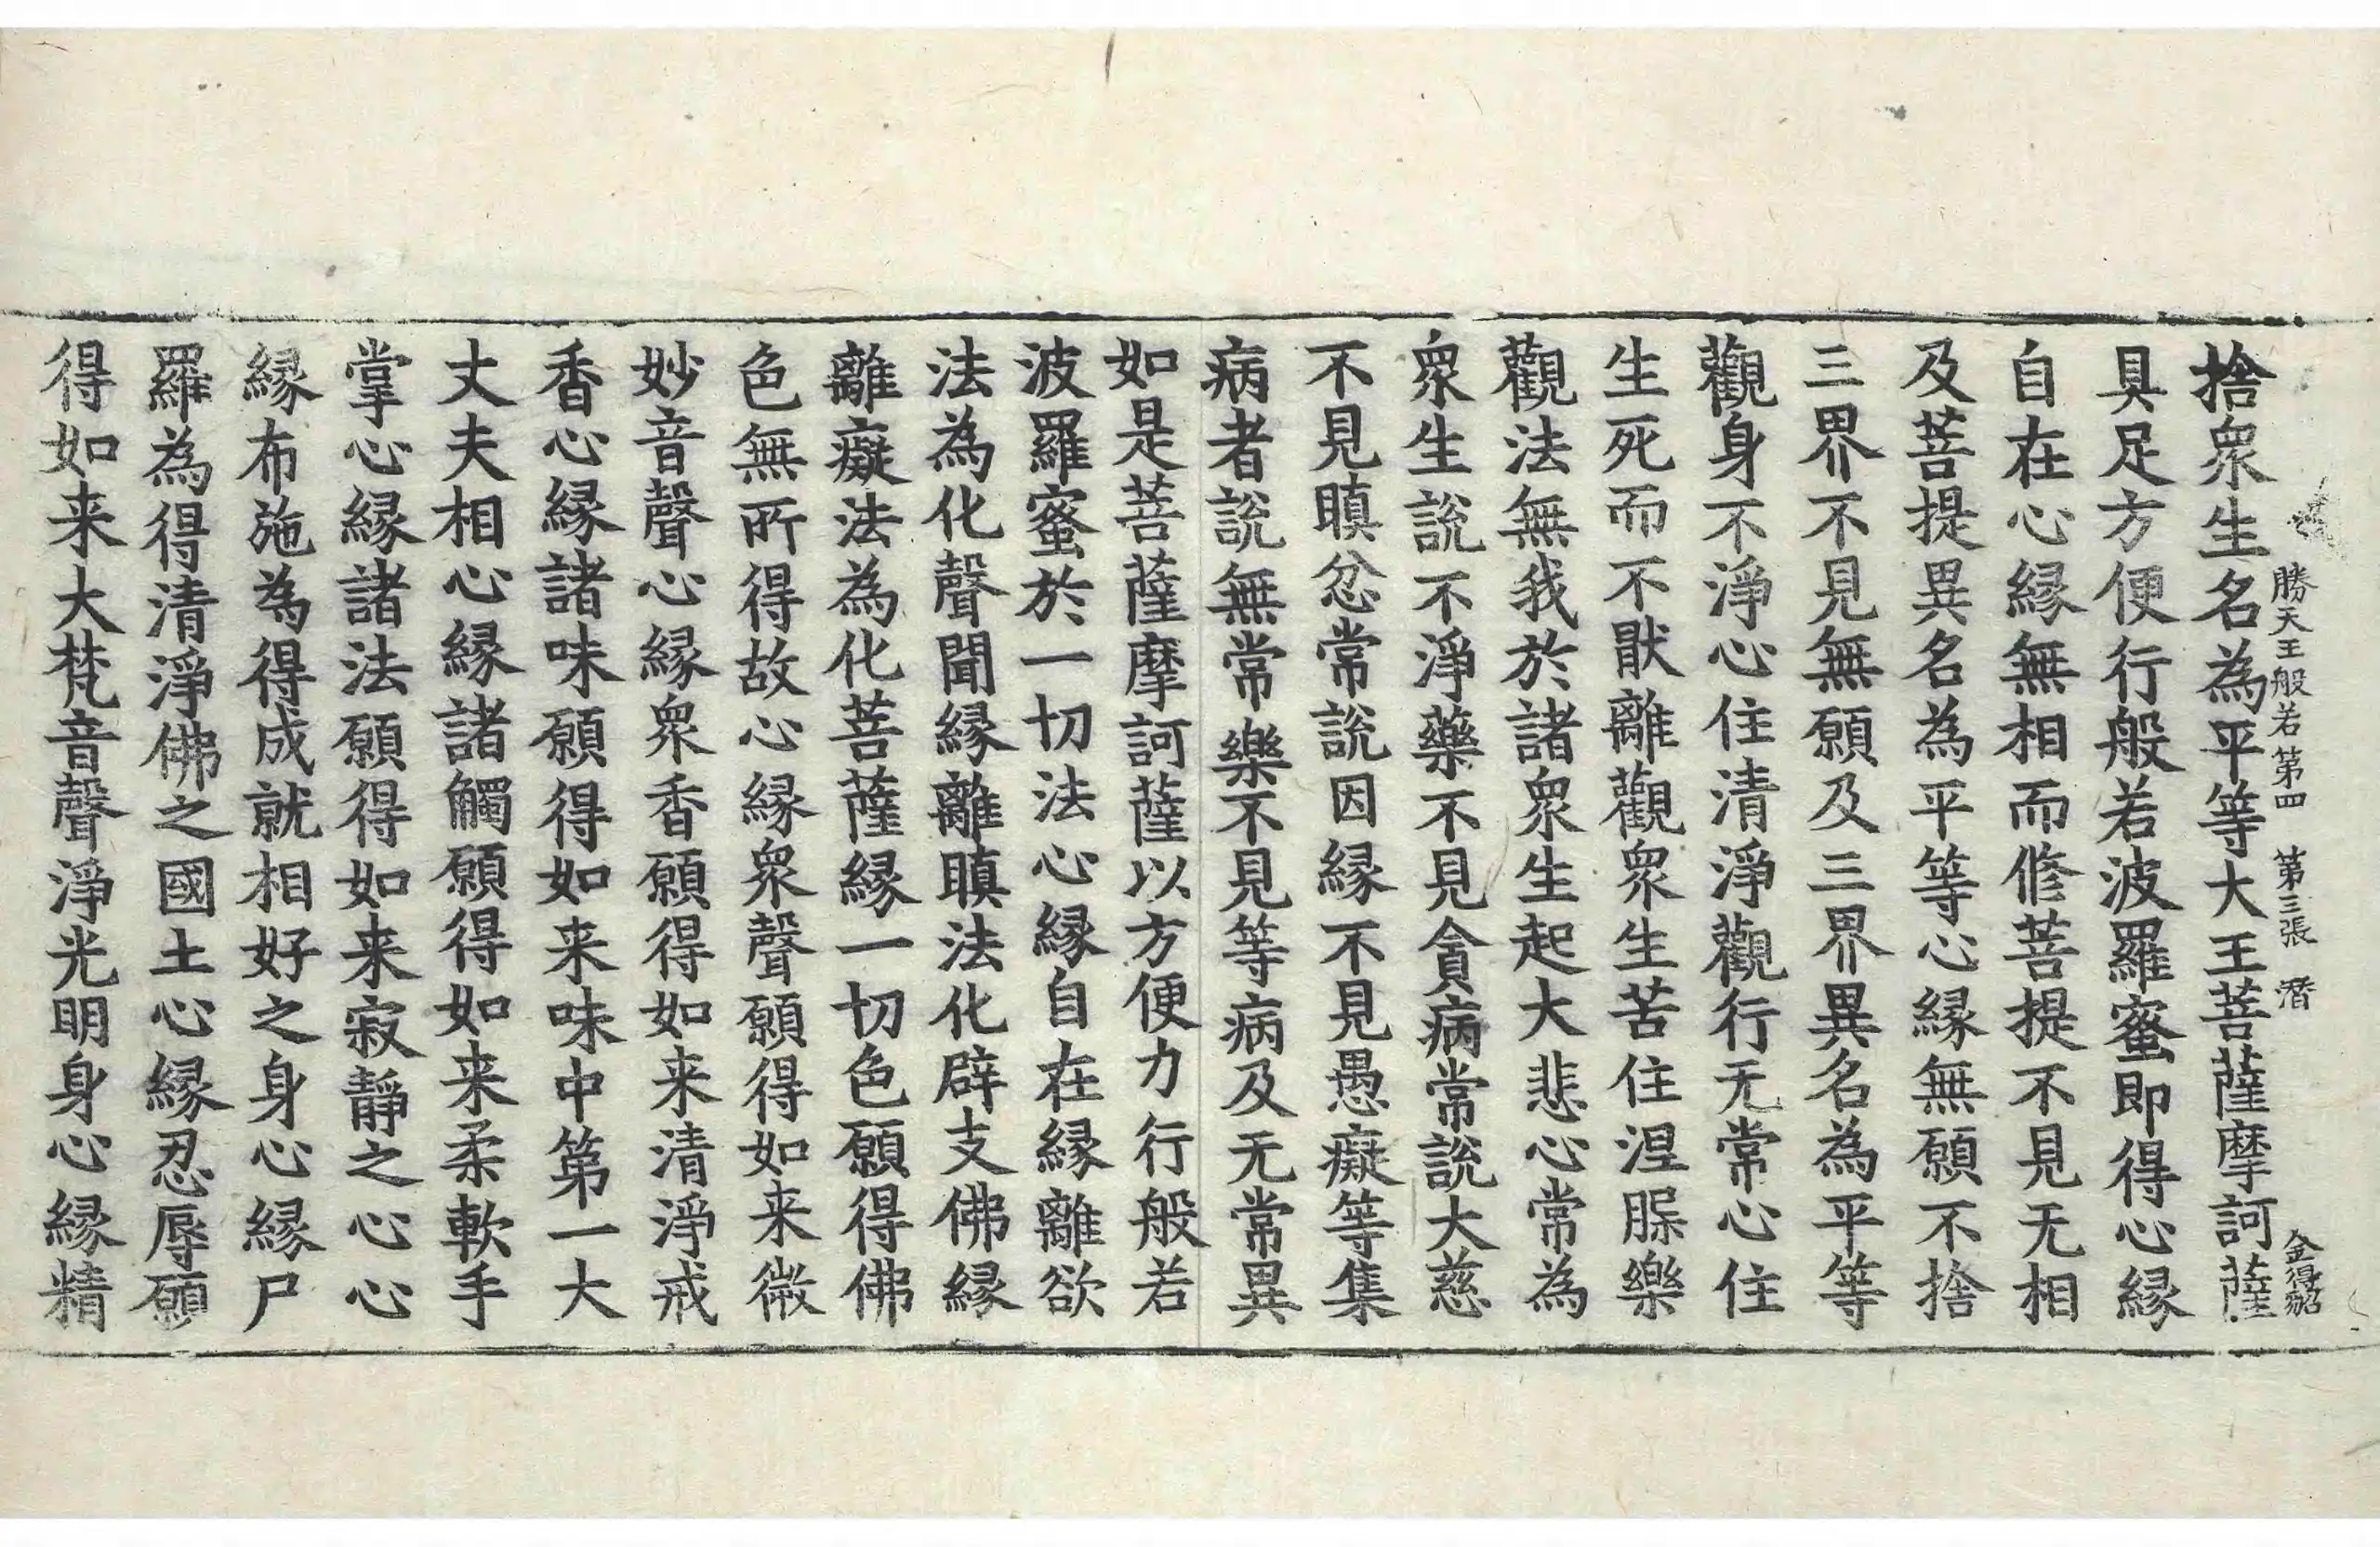 勝天王般若第四 第三張 潛
金得紹
捨衆生名為平等大王菩薩摩訶薩
具足方便行般若波羅蜜即得心縁
自在心縁無相而修菩提不見无相
及菩提異名為平等心縁無願不捨
三界不見無願及三界異名為平等
觀身不淨心住清淨觀行无常心住
生死而不猒離觀衆生苦住涅槃樂
觀法無我於諸衆生起大悲心常為
衆生說不淨藥不見貪病常說大慈
不見瞋忿常說因縁不見愚癡等集
病者說無常樂不見等病及无常異
如是菩薩摩訶薩以方便力行般若
波羅蜜於一切法心縁自在縁離欲
法為化聲聞縁離瞋法化辟支佛縁
離癡法為化菩薩縁一切色願得佛
色無所得故心縁衆聲願得如来微
妙音聲心縁衆香願得如来清淨戒
香心縁諸味願得如来味中第一大
丈夫相心縁諸觸願得如来柔軟手
掌心縁諸法願得如来寂靜之心心
縁布施為得成就相好之身心縁尸
羅為得清淨佛之國土心縁忍辱願
得如来大梵音聲淨光明身心縁精